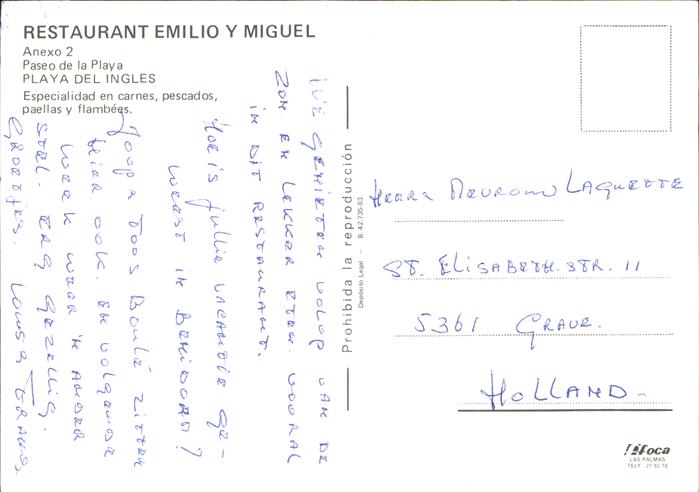 RESTAURANT EMILIO Y MIGUEL
Anexo 2
Paseo de la Playa
PLAYA DEL INGLES
Especialidad en carnes, pescados,
paellas y flambées.
Wij genieten volop van de
zon en lekker eten. vooral
in dit restaurant.
Hoe is jullie vacantie ge-
weest in Benidorm?
Joop &amp; Toos zitten
hier ook. en volgende
week weer 'n ander
stel. erg gezellig.
Groetjes. Louis &amp; Truus.
Prohibida la reproducción
Depósito Legal - B. 42.735-83
Heer &amp; Mevrouw Laquette
St. Elisabeth.str. 11
5361 Grave.
HOLLAND-
foca
LAS PALMAS
TELF. 27 82 76